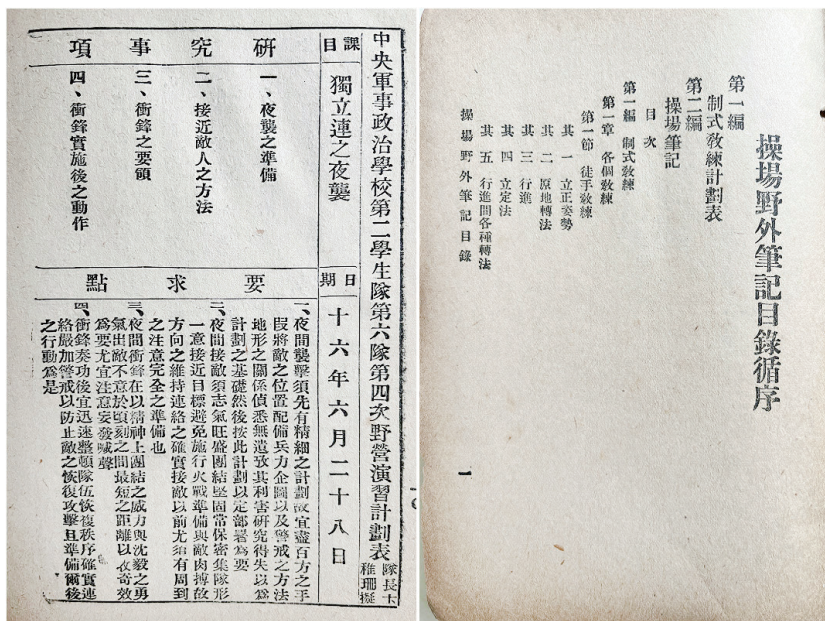 操場野外筆記目錄循序
第一編
制式教練計劃表
第二編
操場筆記
目次
第一編 制式教練
第一章 各個教練
第一節 徒手教練
其一 立正姿勢
其二 原地轉法
其三 行進
其四 立定法
其五 行進間各種轉法
操場野外筆記目錄
一
中央軍事政治學校第二學生隊第六隊第四次野營演習計劃表
隊長卞
稚珊擬
課目
獨立連之夜襲
日期
十六年六月二十八日
研究事項
一、夜襲之準備
二、接近敵人之方法
三、衝鋒之要領
四、衝鋒實施後之動作
要求點
一、夜間襲擊須先有精細之計劃故宜盡百方之手
段將敵之位置配備兵力企圖以及警戒之方法
地形之關係偵悉無遺致其利害研究得失以爲
計劃之基礎然後按此計劃以定部署爲要
二、夜間接敵須志氣旺盛團結堅固常保密集隊形
一意接近目標避免施行火戰準備與敵肉搏故
方向之維持連絡之確實接敵以前尤須有周到
之注意完全之準備也
三、夜間衝鋒在以精神上團結之威力與沈毅之勇
氣出敵不意於頃刻之間最短之距離以收奇效
爲要尤宜注意妄發喊聲
四、衝鋒奏功後宜迅速整頓隊伍恢復秩序確實連
絡嚴加警戒以防止敵之恢復攻擊且準備爾後
之行動爲是